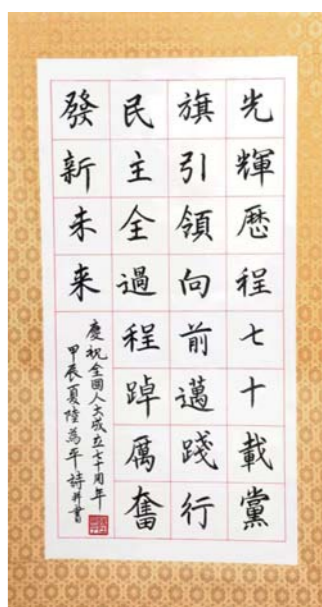 光輝歷程七十載黨
旗引領向前邁踐行
民主全過程踔厲奮
發新未来
慶祝全國人大成立七十周年
甲辰夏陸為平詩并書